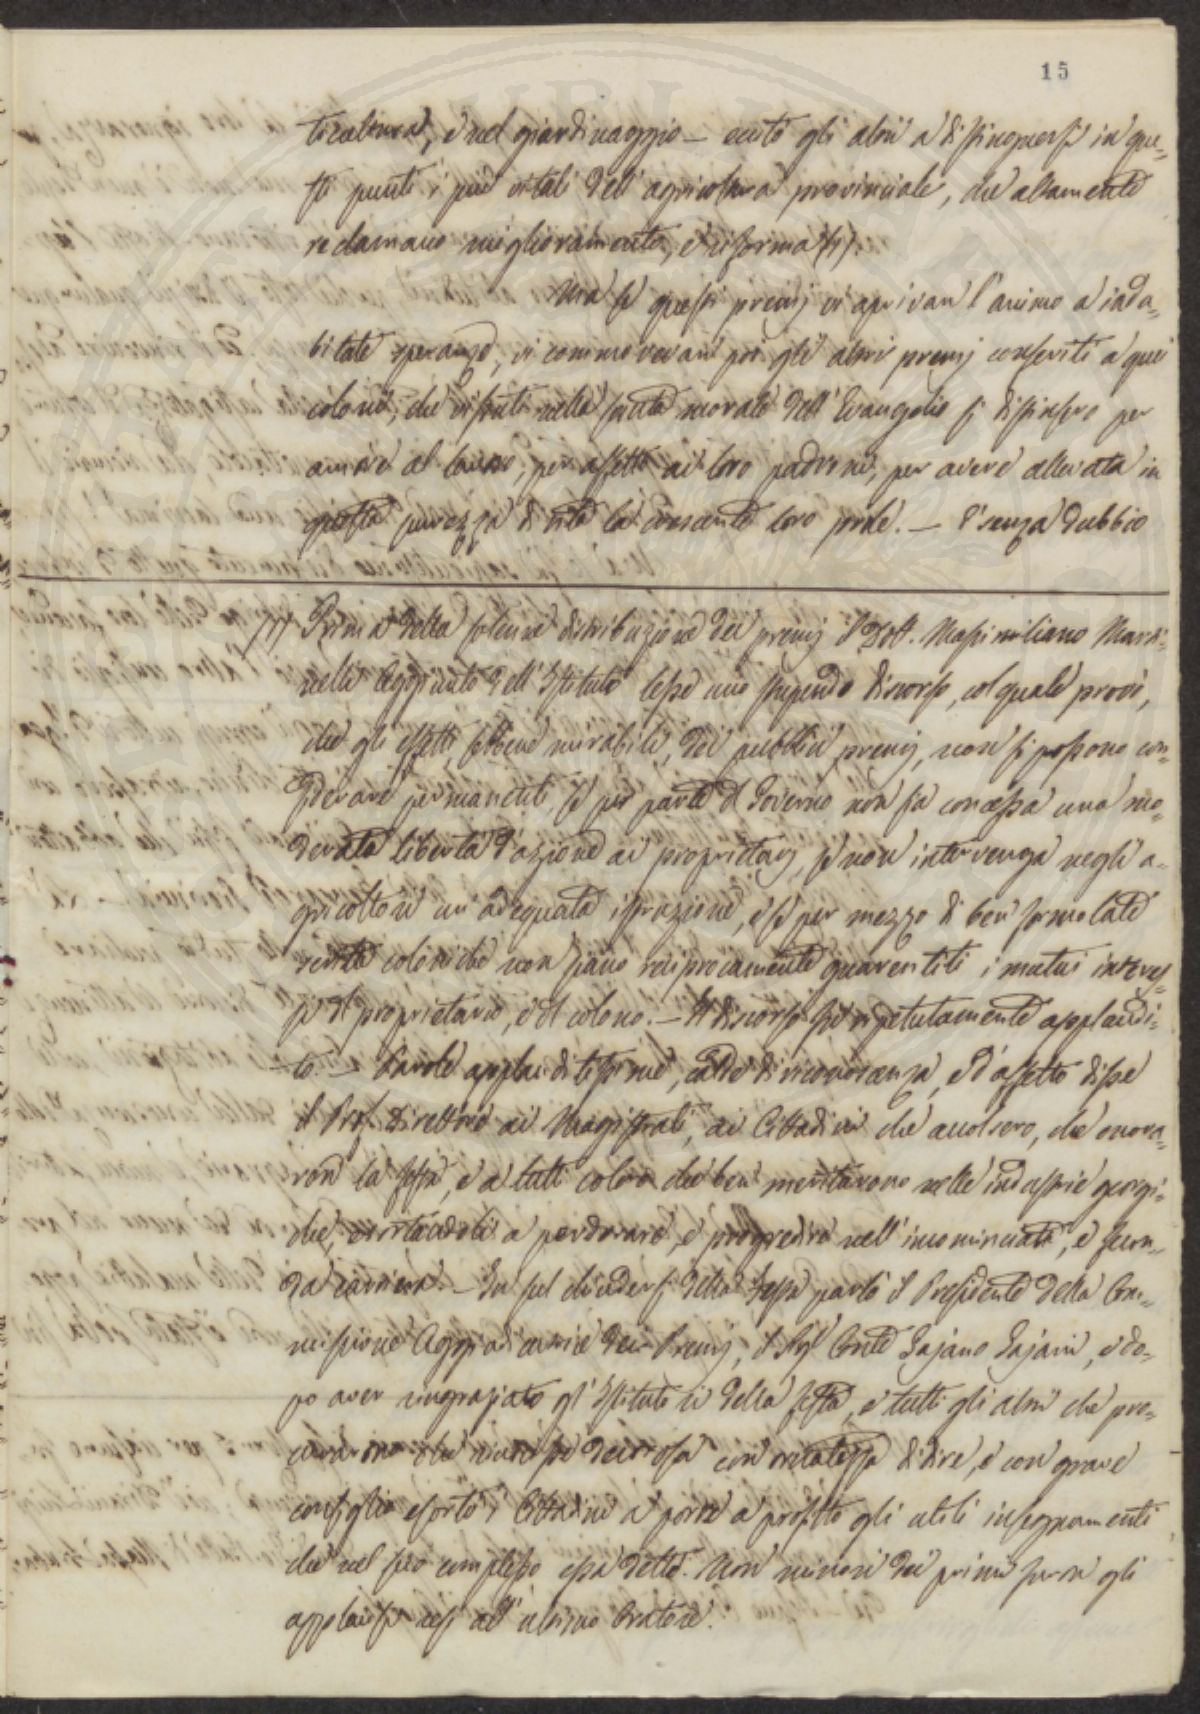 15
ticoltura, e nel giardinaggio — ecciti gli altri a distinguersi in que-
sti punti i più vitali dell'agricoltura provinciale, che altamente
reclamano miglioramento, e riforma (1).
Ma se questi premj ci aprivan l'animo a inda-
bitate speranze, ci commovevan poi gli altri premj conferiti a quei
coloni, che istruiti nella santa morale dell'Evangelio si distinsero per
amore al lavoro, per affetto ai loro padroni, per avere allevata in
questa purezza di vita la crescente loro prole. — È senza dubbio
(1) Prima della solenne distribuzione dei premj il Dott. Massimiliano Marti-
nelli Aggiunto dell'Istituto lesse uno stupendo discorso, col quale provò,
che gli effetti, sebbene mirabili, dei pubblici premj, non si possono con-
siderare permanenti, se per parte del Governo non sia concessa una mo-
derata libertà d'azione ai proprietarj, se non intervenga negli a-
gricoltori un'adeguata istruzione, e se per mezzo di ben formolate
scritte coloniche non siano reciprocamente guarentiti i mutui interes-
si del proprietario, e del colono. — Il discorso fu ripetutamente applaudi-
to. — Parole applauditissime, calde di riconoscenza, e d'affetto disse
il Prof. Direttore ai Magistrati, ai Cittadini che accolsero, che onora-
ron la festa, e a tutti coloro che ben meritarono nelle industrie georgi-
che, esortandoli a perdurare, e progredire nell'incominciata, e fecon-
da carriera. — In sul chiudersi della festa parlò il Presidente della Com-
missione Aggiudicatrice dei Premj, il Sigr Conte Gajano Gajani, e do-
po aver ringraziato gl'Istitutori della festa, e tutti gli altri che pro-
curarono che riuscisse decorosa con ornatezza di dire, e con grave
consiglio esortò i Cittadini a porre a profitto gli utili insegnamenti
che nel suo complesso essa dette. Non minori dei primi furon gli
applausi resi all'ultimo Oratore.